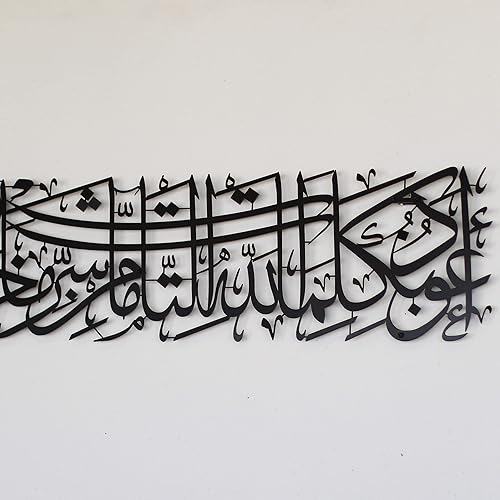 أَعُوذُ بِكَلِمَاتِ اللَّهِ التَّامَّاتِ مِنْ شَرِّ مَا